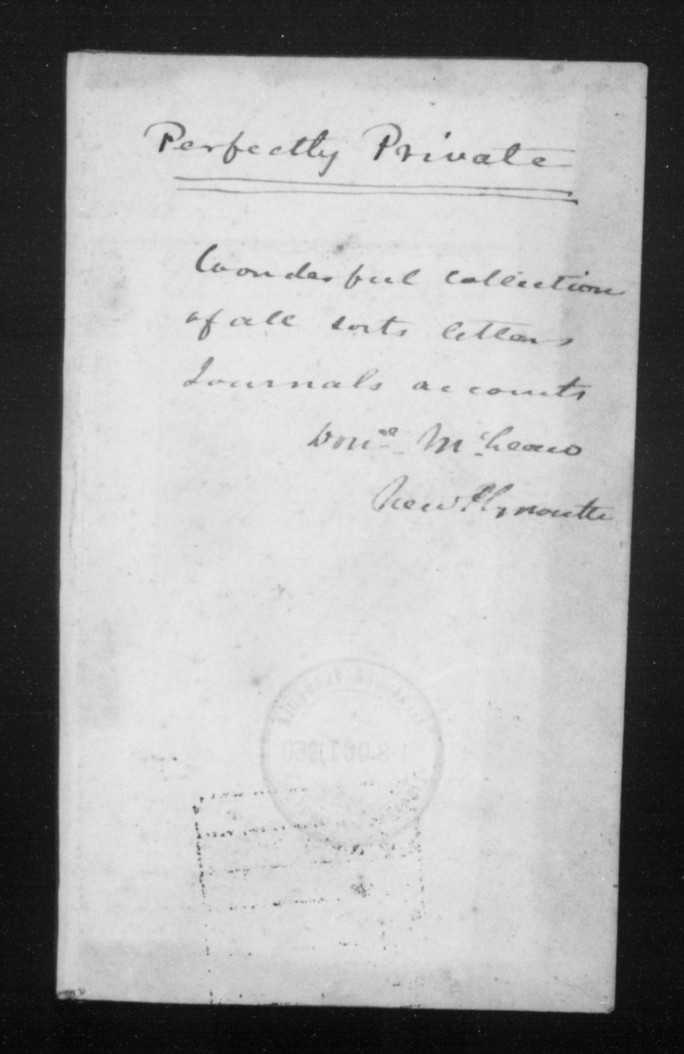 Perfectly Private
Wonderful collection
of all sorts letters
Journals accounts
Don.ld McLean
New Plymouth
8 OCT 1960